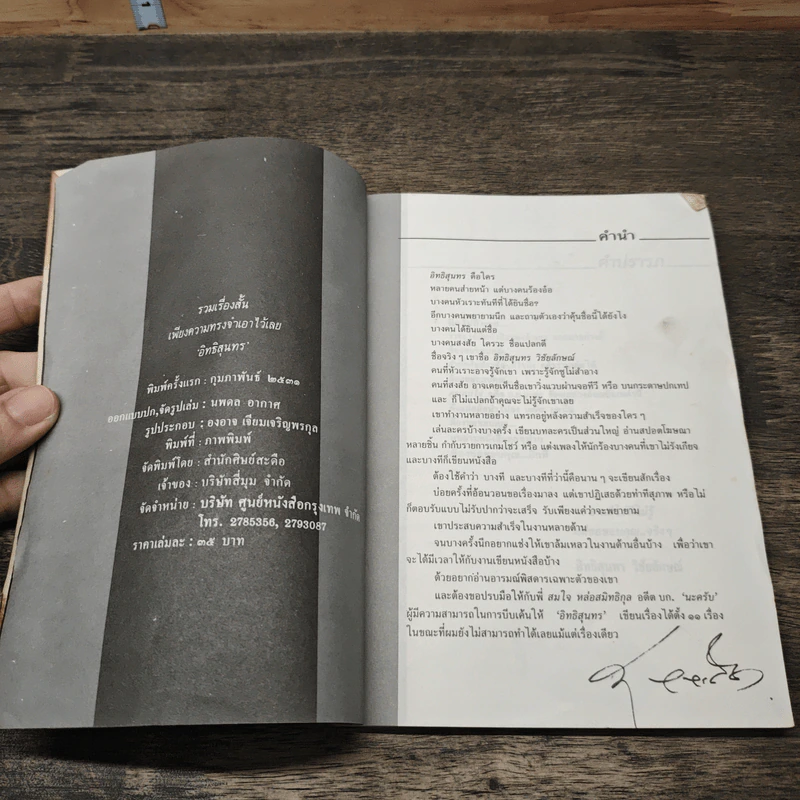 รวมเรื่องสั้น
เพียงความทรงจำเอาไว้เลย
'อิทธิสุนทร'
พิมพ์ครั้งแรก : กุมภาพันธ์ ๒๕๓๑
ออกแบบปก,จัดรูปเล่ม : นพดล อากาศ
รูปประกอบ : องอาจ เจียมเจริญพรกุล
พิมพ์ที่ : ภาพพิมพ์
จัดพิมพ์โดย : สำนักศิษย์สะดือ
เจ้าของ : บริษัทสี่มุม จำกัด
จัดจำหน่าย : บริษัท ศูนย์หนังสือกรุงเทพ จำกัด
โทร. 2785356, 2793087
ราคาเล่มละ : ๓๕ บาท
คำนำ
อิทธิสุนทร คือใคร
หลายคนส่ายหน้า แต่บางคนร้องอ้อ
บางคนหัวเราะทันทีที่ได้ยินชื่อ
อีกบางคนพยายามนึก และถามตัวเองว่าคุ้นชื่อนี้ได้ยังไง
บางคนได้ยินแต่ชื่อ
บางคนสงสัย ใครวะ ชื่อแปลกดี
ชื่อจริง ๆ เขาชื่อ อิทธิสุนทร วิชัยลักษณ์
คนที่หัวเราะอาจรู้จักเขา เพราะรู้จักซูโม่สำอาง
คนที่สงสัย อาจเคยเห็นชื่อเขาวิ่งแวบผ่านจอทีวี หรือ บนกระดาษปกเทป
และ ก็ไม่แปลกถ้าคุณจะไม่รู้จักเขาเลย
เขาทำงานหลายอย่าง แทรกอยู่หลังความสำเร็จของใคร ๆ
เล่นละครบ้างบางครั้ง เขียนบทละครเป็นส่วนใหญ่ อ่านสปอตโฆษณา
หลายชิ้น กำกับรายการเกมโชว์ หรือ แต่งเพลงให้นักร้องบางคนที่เขาไม่รังเกียจ
และบางทีก็เขียนหนังสือ
ต้องใช้คำว่า บางที และบางทีที่ว่านี้คือนาน ๆ จะเขียนสักเรื่อง
บ่อยครั้งที่อ้อนวอนขอเรื่องมาลง แต่เขาปฏิเสธด้วยท่าทีสุภาพ หรือไม่
ก็ตอบรับแบบไม่รับปากว่าจะเสร็จ รับเพียงแค่ว่าจะพยายาม
เขาประสบความสำเร็จในงานหลายด้าน
จนบางครั้งนึกอยากแช่งให้เขาล้มเหลวในงานด้านอื่นบ้าง เพื่อว่าเขา
จะได้มีเวลาให้กับงานเขียนหนังสือบ้าง
ด้วยอยากอ่านอารมณ์พิสดารเฉพาะตัวของเขา
และต้องขอปรบมือให้กับพี่ สมใจ หล่อสมิทธิกุล อดีต บก. 'นะครับ'
ผู้มีความสามารถในการบีบเค้นให้ 'อิทธิสุนทร' เขียนเรื่องได้ตั้ง ๑๑ เรื่อง
ในขณะที่ผมยังไม่สามารถทำได้เลยแม้แต่เรื่องเดียว